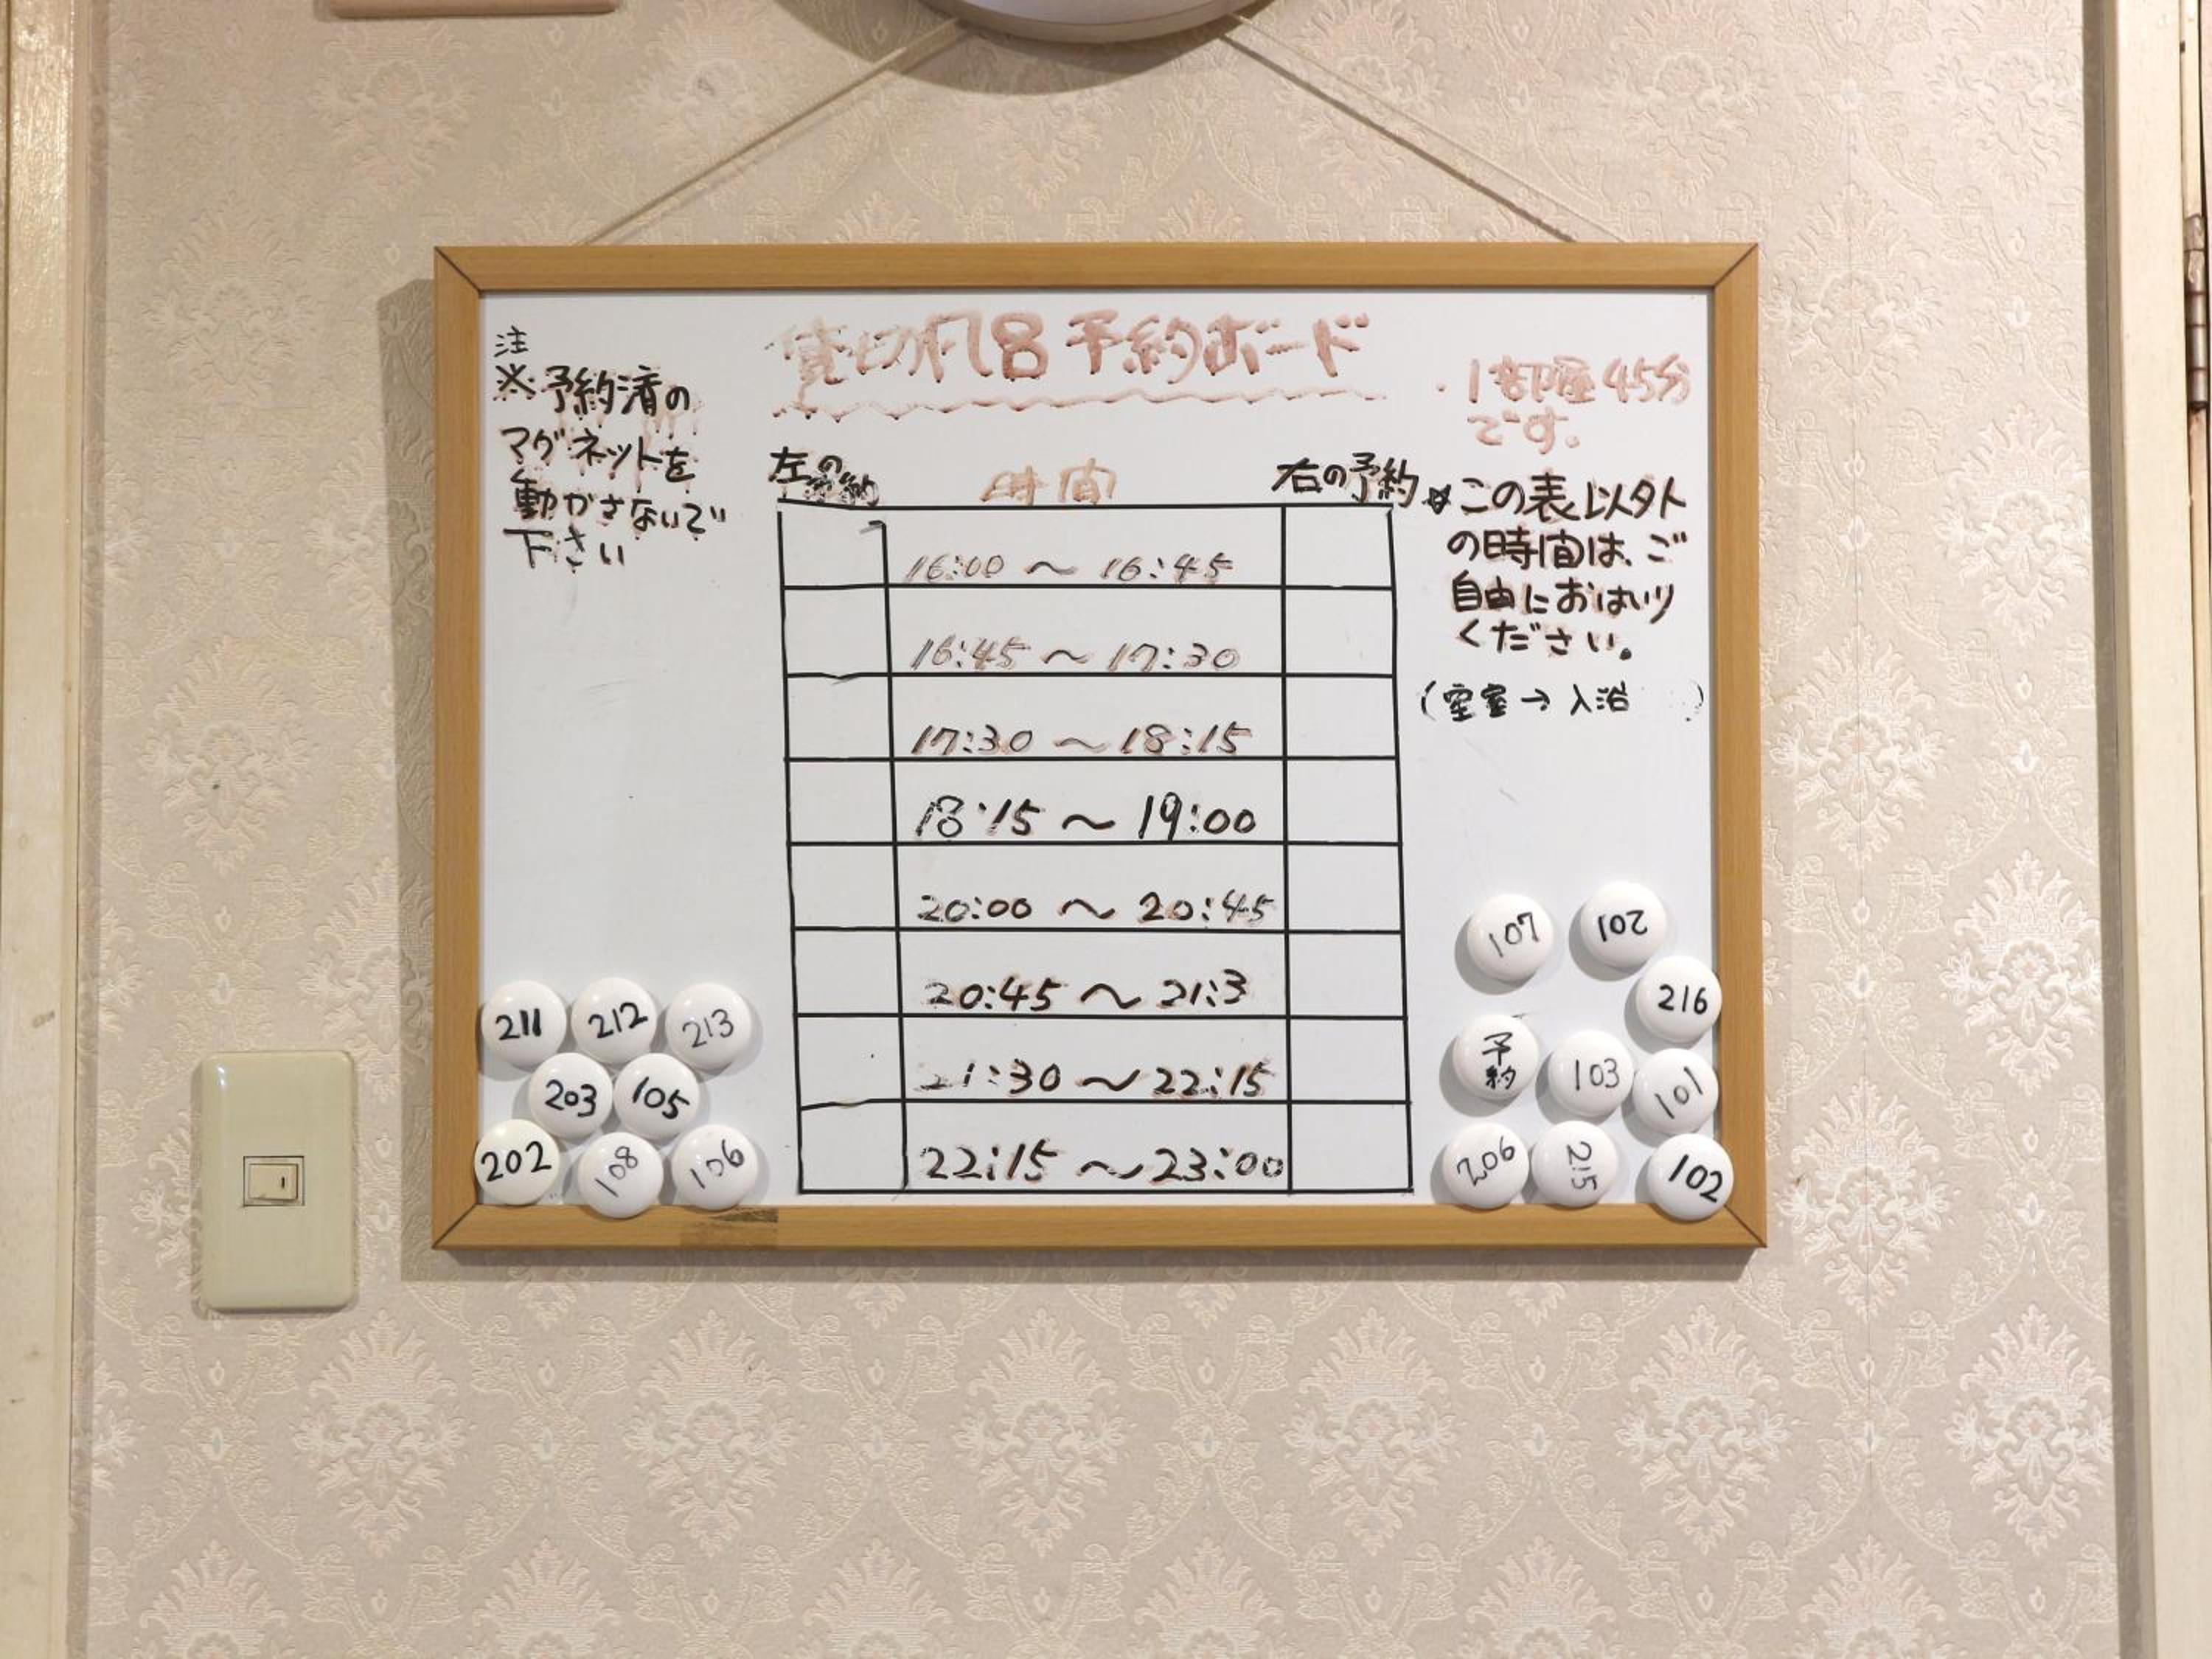 貸切風呂予約ボード
注
※予約済の
マグネットを
動かさないで
下さい
・1部屋45分
です。
左の予約
時間
右の予約
16:00 〜 16:45
16:45 〜 17:30
17:30 〜 18:15
18:15 〜 19:00
20:00 〜 20:45
20:45 〜 21:3
21:30 〜 22:15
22:15 〜 23:00
☆この表以外
の時間は、ご
自由におはいり
ください。
(空室→入浴 )
211
212
213
203
105
202
108
106
107
102
216
予約
103
101
206
215
102